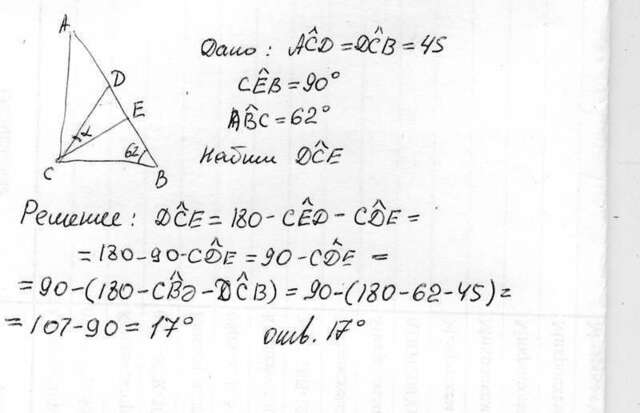 A
D
E
62
C
B
Дано: AĈD = DĈB = 45
CÊB = 90°
AB̂C = 62°
Найти DĈE
Решение: DĈE = 180 - CÊD - CD̂E =
= 180 - 90 - CD̂E = 90 - CD̂E =
= 90 - (180 - CB̂D - DĈB) = 90 - (180 - 62 - 45) =
= 107 - 90 = 17° отв. 17°